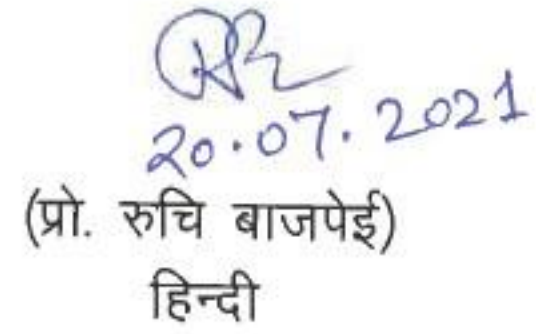 20.07.2021
(प्रो. रुचि बाजपेई)
हिन्दी